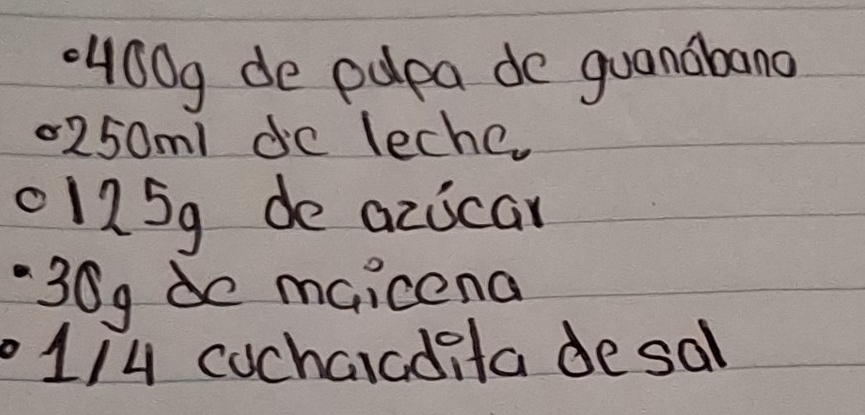 •400g de pulpa de guanábana
•250ml de leche
•125g de azúcar
•30g de maicena
•1/4 cucharadita de sal